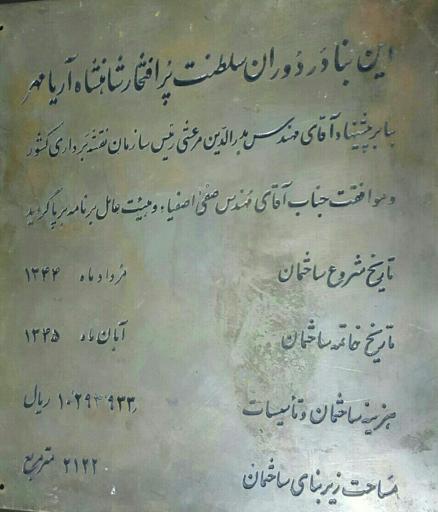 این بنا در دوران سلطنت پُر افتخار شاهنشاه آریا مهر
بنا بر پیشنهاد آقای مهندس بدرالدین مرعشی رئیس سازمان نقشه برداری کشور
و موافقت جناب آقای مهندس صفی اصفیاء و هیئت عامل برنامه برپا گردید
تاریخ شروع ساختمان مرداد ماه ۱۳۴۴
تاریخ خاتمه ساختمان آبان ماه ۱۳۴۵
هزینه ساختمان و تأسیسات ۱۰٬۲۹۴٬۹۳۳ ریال
مساحت زیر بنای ساختمان ۲۱۲۲ متر مربع